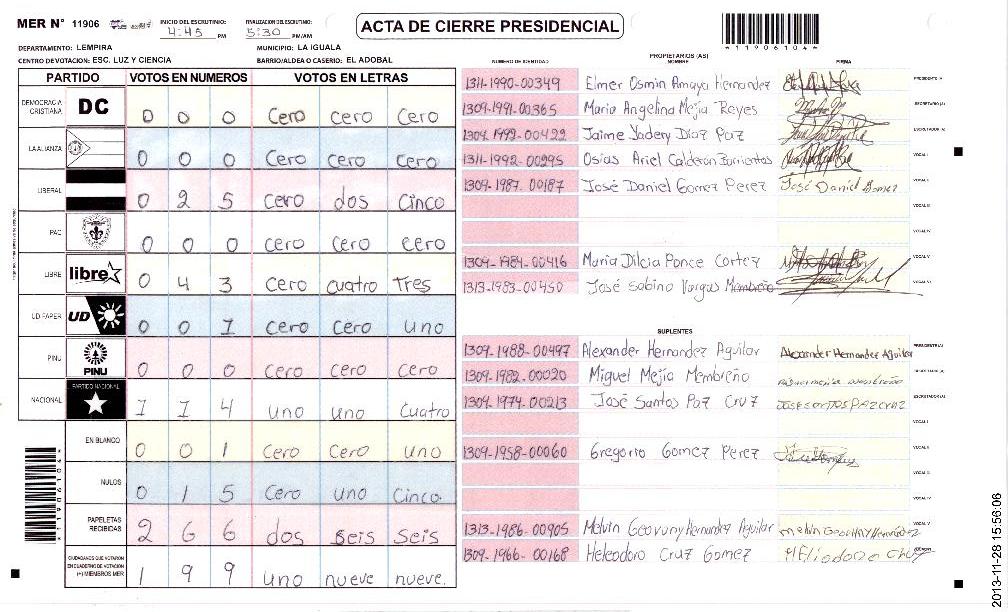 MER N° 11906
INICIO DEL ESCRUTINIO: 4:45 PM
FINALIZACION DEL ESCRUTINIO: 5:30 PM/AM
ACTA DE CIERRE PRESIDENCIAL
*11906104*
DEPARTAMENTO: LEMPIRA
MUNICIPIO: LA IGUALA
CENTRO DE VOTACION: ESC. LUZ Y CIENCIA
BARRIO/ALDEA O CASERIO: EL ADOBAL
PARTIDO VOTOS EN NUMEROS VOTOS EN LETRAS
DEMOCRACIA CRISTIANA DC 0 0 0 Cero Cero Cero
LA ALIANZA 0 0 0 Cero Cero Cero
LIBERAL 0 2 5 Cero dos Cinco
PAC 0 0 0 Cero Cero Cero
LIBRE libre 0 4 3 Cero cuatro Tres
UD FAPER UD 0 0 1 Cero Cero uno
PINU PINU 0 0 0 Cero Cero Cero
NACIONAL PARTIDO NACIONAL 1 1 4 uno uno Cuatro
EN BLANCO 0 0 1 Cero Cero uno
NULOS 0 1 5 Cero uno Cinco
PAPELETAS RECIBIDAS 2 6 6 dos Seis Seis
CIUDADANOS QUE VOTARON EN CUADERNO DE VOTACION (+) MIEMBROS MER 1 9 9 uno nueve nueve.
*11906104*
PROPIETARIOS (AS)
NUMERO DE IDENTIDAD NOMBRE FIRMA
1311-1990-00349 Elmer Osmin Amaya Hernandez PRESIDENTE (A)
1309-1991-00365 Maria Angelina Mejia Reyes SECRETARIO (A)
1309-1992-00422 Jaime Yadery Diaz Paz ESCRUTADOR (A)
1311-1992-00295 Osias Ariel Calderon Barrientos VOCAL I
1309-1987-00187 José Daniel Gomez Perez José Daniel Gomez VOCAL II
VOCAL III
VOCAL IV
1309-1984-00416 Maria Dilcia Ponce Cortez VOCAL V
1313-1983-00450 José Sabino Vargas Membreño VOCAL VI
SUPLENTES
1309-1988-00497 Alexander Hernandez Aguilar Alexander Hernandez Aguilar PRESIDENTE (A)
1309-1982-00020 Miguel Mejia Membreño SECRETARIO (A)
1309-1974-00213 José Santos Paz Cruz JOSE SANTOS PAZ CRUZ ESCRUTADOR (A)
VOCAL I
1309-1958-00060 Gregorio Gomez Perez VOCAL II
VOCAL III
VOCAL IV
1313-1986-00905 Melvin Geovany Hernandez Aguilar VOCAL V
1309-1966-00168 Heleodoro Cruz Gomez
2013-11-28 15:56:06